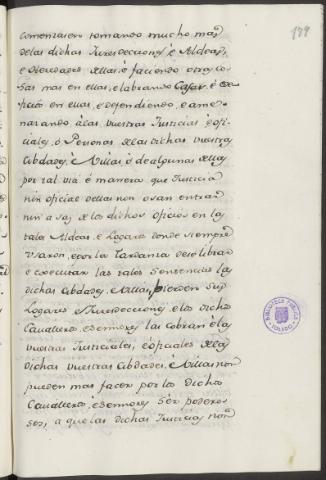 189
comenzaren tomando mucho mas
delas dichas Jurisdecciones è Aldeas,
è Heredades dellas, è faciendo otras co-
sas mas en ellas, è labrando Casas, è
en ellas, è defendiendo, è ame-
nazando à las vuestras Justicias è ofi-
ciales, è Personas delas dichas vuestras
Cibdades, è Villas, è de algunas dellas
por tal via è manera que Justicia
nin oficial dellas non osan entrar
nin usar de los dichos oficios en las
tales Aldeas, è Logares donde siempre
usaron, è por la tardanza de se librar
è executar las tales Sentencias las
dichas Cibdades, è Villas, pierden sus
Logares, è Jurisdecciones, è los dichos
Cavalleros, è Señores las cobran è las
vuestras Justicias, è oficiales delas
dichas vuestras Cibdades, è Villas non
pueden mas facer por los dichos
Cavalleros, è Señores sèr podero-
sos, a que las dichas Justicias non
BIBLIOTECA PUBLICA
TOLEDO